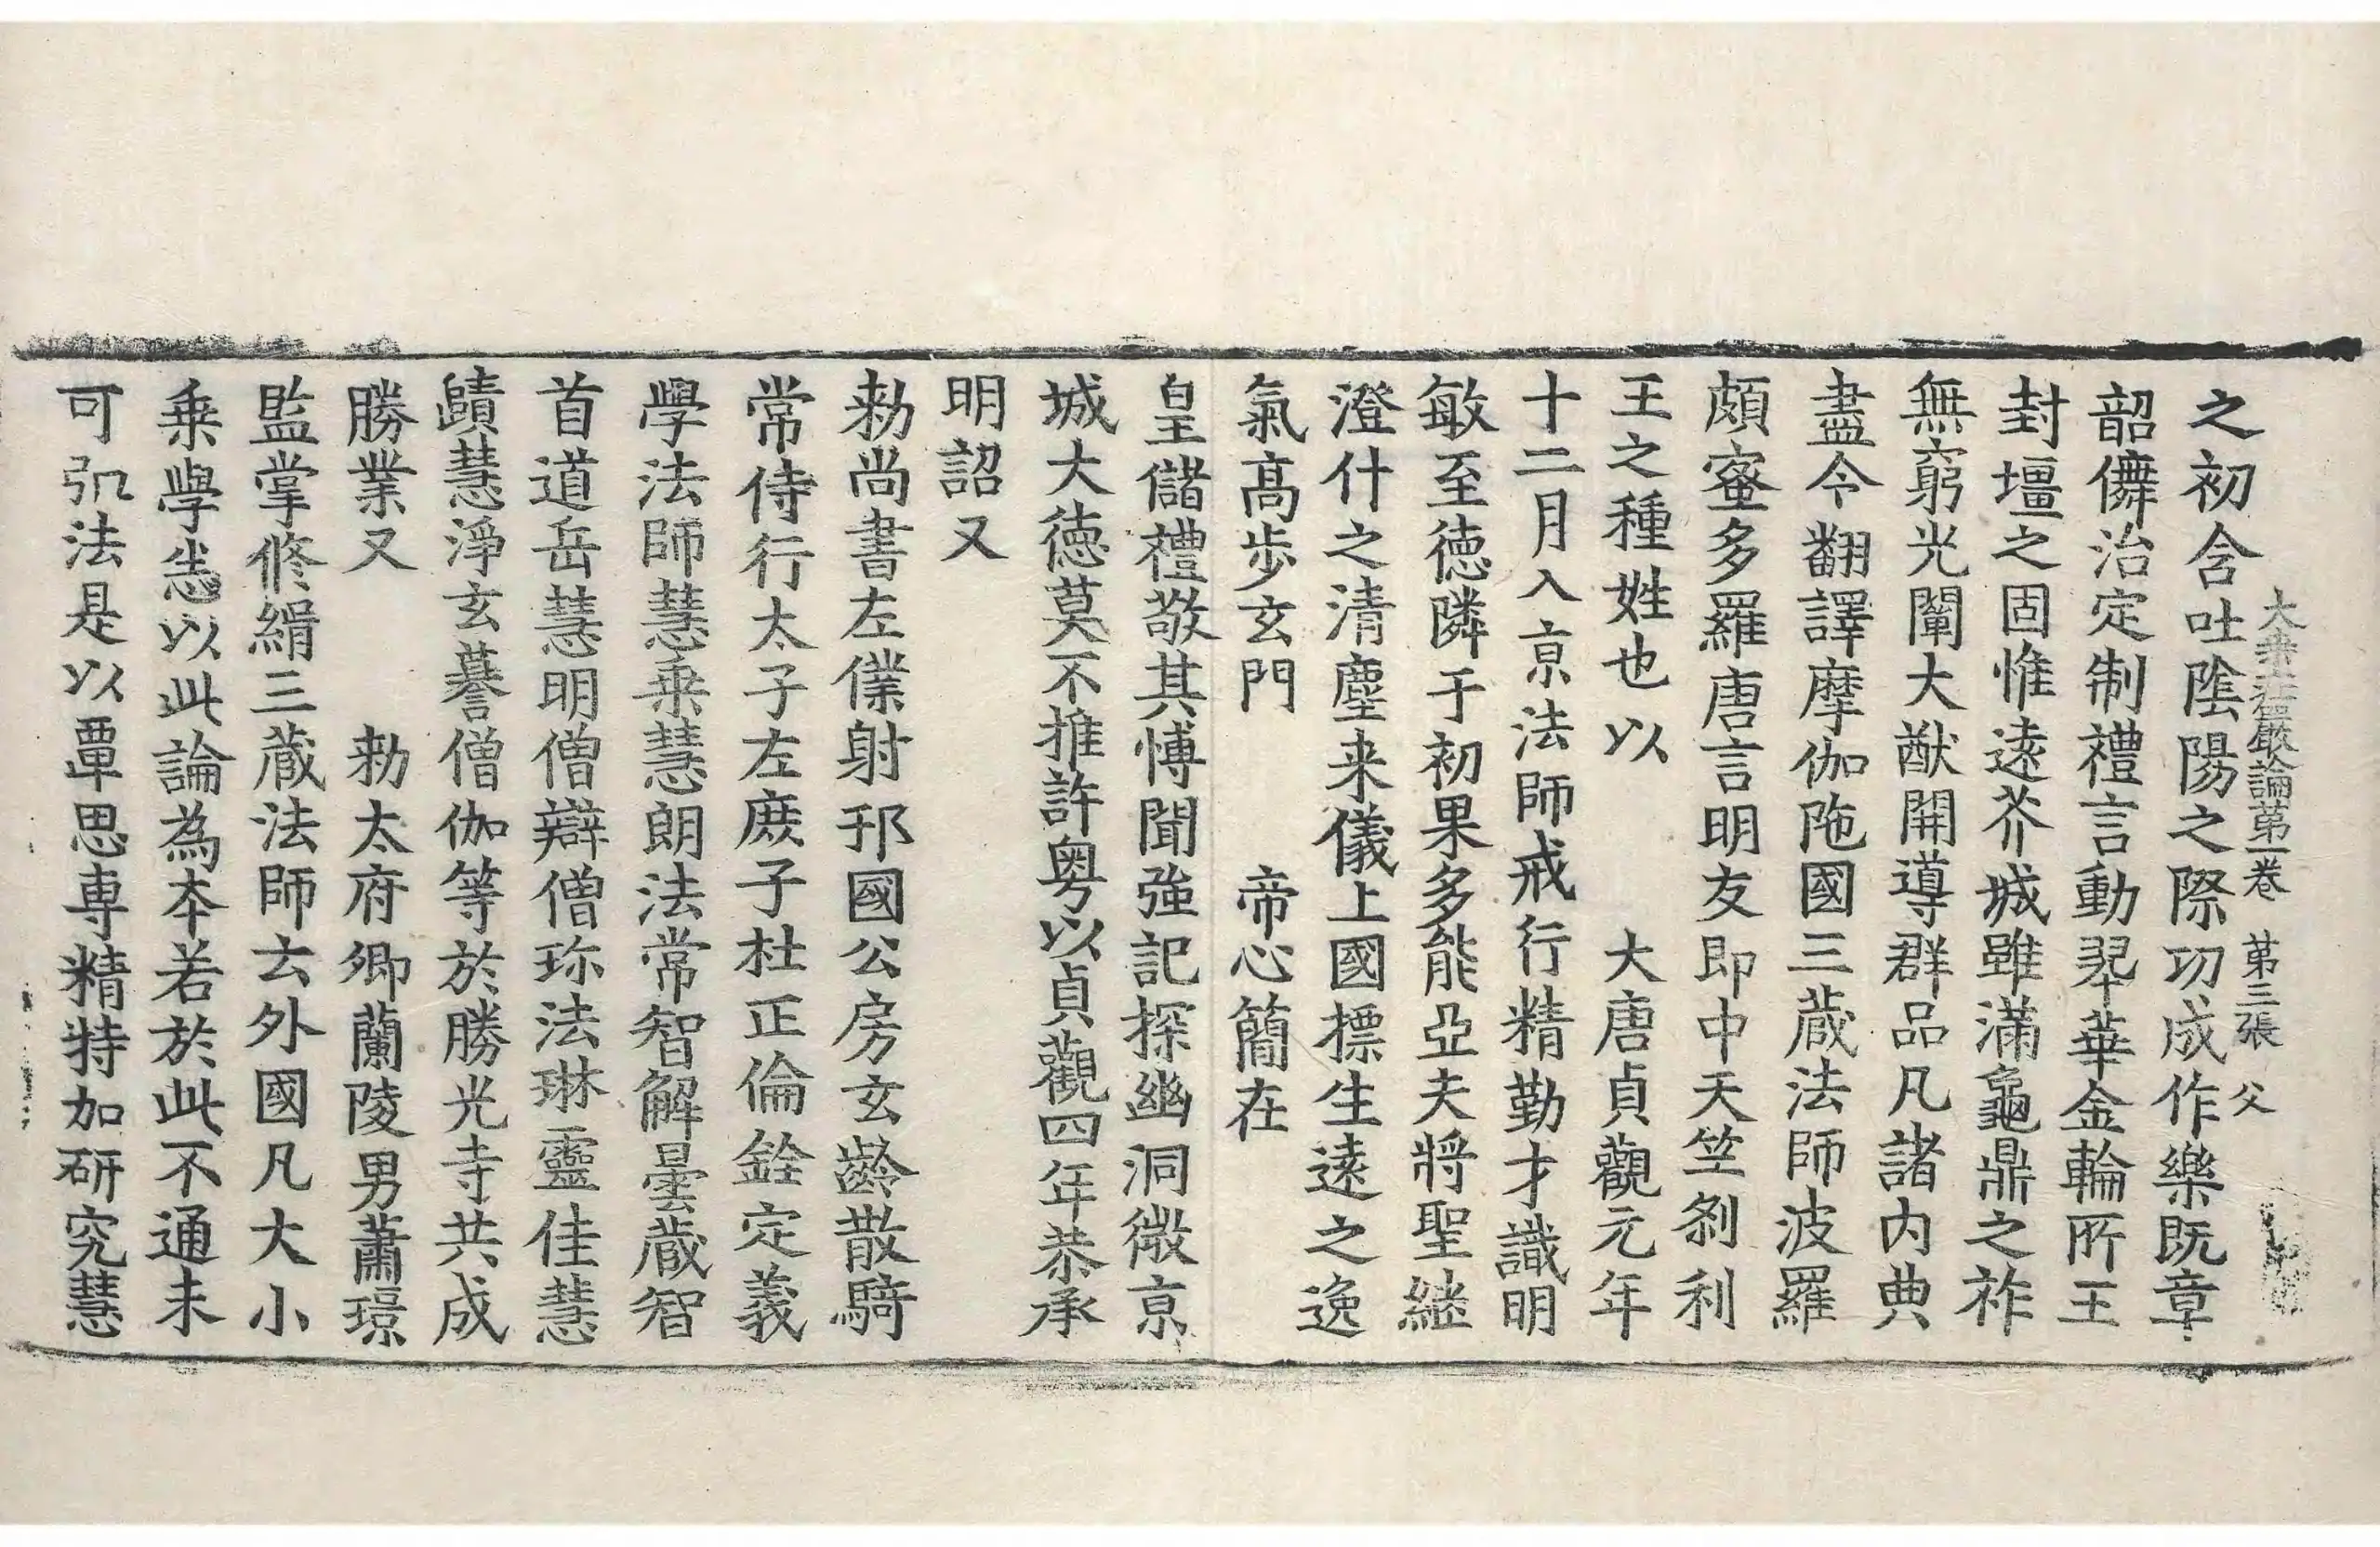 大乗莊嚴論第一卷 第三張 父
之初含吐陰陽之際切成作樂既章
韶儛治定制禮言動翠華金輪所王
封壃之固惟逺芥城雖滿龜鼎之祚
無窮光闡大猷開導群品凡諸内典
盡令翻譯摩伽陁國三蔵法師波羅
頗蜜多羅唐言明友即中天竺刹利
王之種姓也以 大唐貞觀元年
十二月入京法師戒行精勤才識明
敏至徳隣于初果多能亞夫將聖継
澄什之清塵来儀上國摽生逺之逸
氣髙步玄門 帝心簡在
皇儲禮敬其博聞強記探幽洞微京
城大徳莫不推許粤以貞觀四年恭承
明詔又
勑尚書左僕射邘國公房玄齡散騎
常侍行太子左庶子杜正倫銓定義
學法師慧乗慧朗法常智解曇蔵智
首道岳慧明僧辯僧珎法琳靈佳慧
賾慧淨玄謩僧伽等於勝光寺共成
勝業又 勑太府卿蘭陵男蕭璟
監掌修緝三蔵法師云外國凡大小
乗學悉以此論為夲若於此不通未
可弘法是以覃思専精特加研究慧